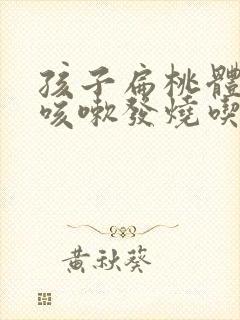 孩子扁桃體
咳嗽發燒喫
黃秋葵